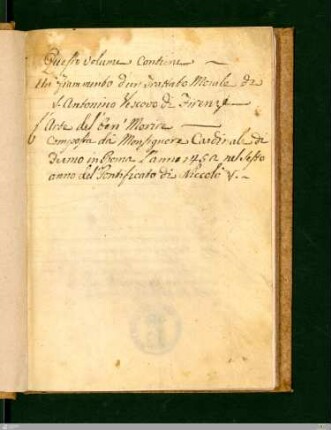 Questo volume contiene
Un frammento d'un Trattato Morale di
S. Antonino Vescovo di Firenze
L'Arte del ben' Morire
composta da Monsignore Cardinale di
Fermo in Roma l'anno 1452 nel Sesto
anno del Pontificato di Niccolò V.